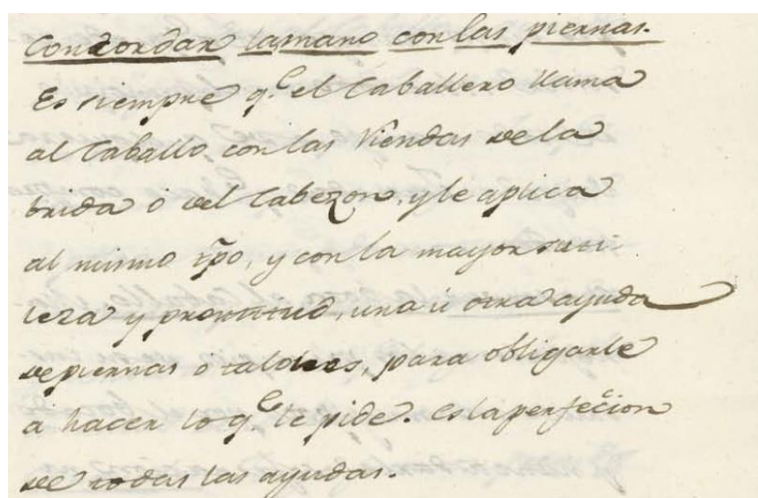 Concordar la mano con las piernas.
Es siempre q.e el Caballero llama
al Caballo con las Riendas de la
brida ó del Cabezon, y le aplica
al mismo tpo, y con la mayor suti
leza y prontitud, una ú otra ayuda
de piernas ó talones, para obligarle
a hacer lo q.e le pide. Es la perfeccion
de todas las ayudas.